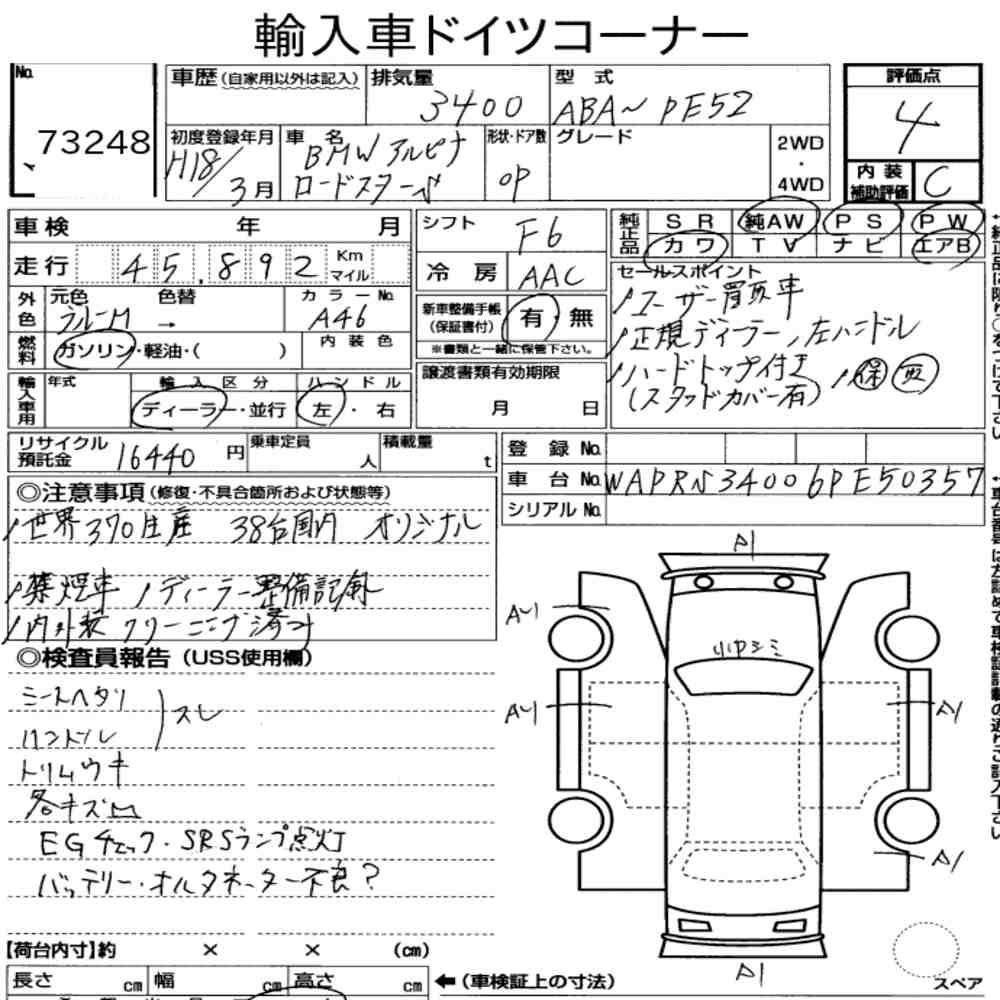 輸入車ドイツコーナー
No.
73248
車歴(自家用以外は記入)
排気量 3400
型式 ABA~PE52
評価点 4
内装補助評価 C
初度登録年月 H18/3月
車名 BMWアルピナ
ロードスターS
形状・ドア数 OP
グレード
2WD
・
4WD
車検 年 月
走行 45,892 Km マイル
外色 元色 色替 カラーNo
ブルーM → A46
燃料 ガソリン・軽油・( ) 内装色
輸入車用 年式 輸入区分 ハンドル
ディーラー・並行 左・右
シフト F6
冷房 AAC
新車整備手帳(保証書付) 有・無
※書類と一緒に保管下さい。
譲渡書類有効期限
月 日
純正品 SR 純AW PS PW
カワ TV ナビ エアB
セールスポイント
/ユーザー買取車
/正規ディーラー、左ハンドル
/ハードトップ付き /保 取
(スタッドカバー有)
リサイクル預託金 16440円
乗車定員 人
積載量 t
登録No.
車台No. WAPRS34006PE50357
シリアルNo.
◎注意事項(修復・不具合箇所および状態等)
/世界370生産 38台国内 オリジナル
/禁煙車 /ディーラー整備記録
/内外装クリーニング済み
◎検査員報告(USS使用欄)
シートヘタリ
ハンドル スレ
トリムウキ
各キズ凹
EGチェック・SRSランプ点灯
バッテリー・オルタネーター不良?
A1
A1
A1
A1
A1
A1
【荷台内寸】約 × × (cm)
長さ cm 幅 cm 高さ cm
←(車検証上の寸法)
スペア